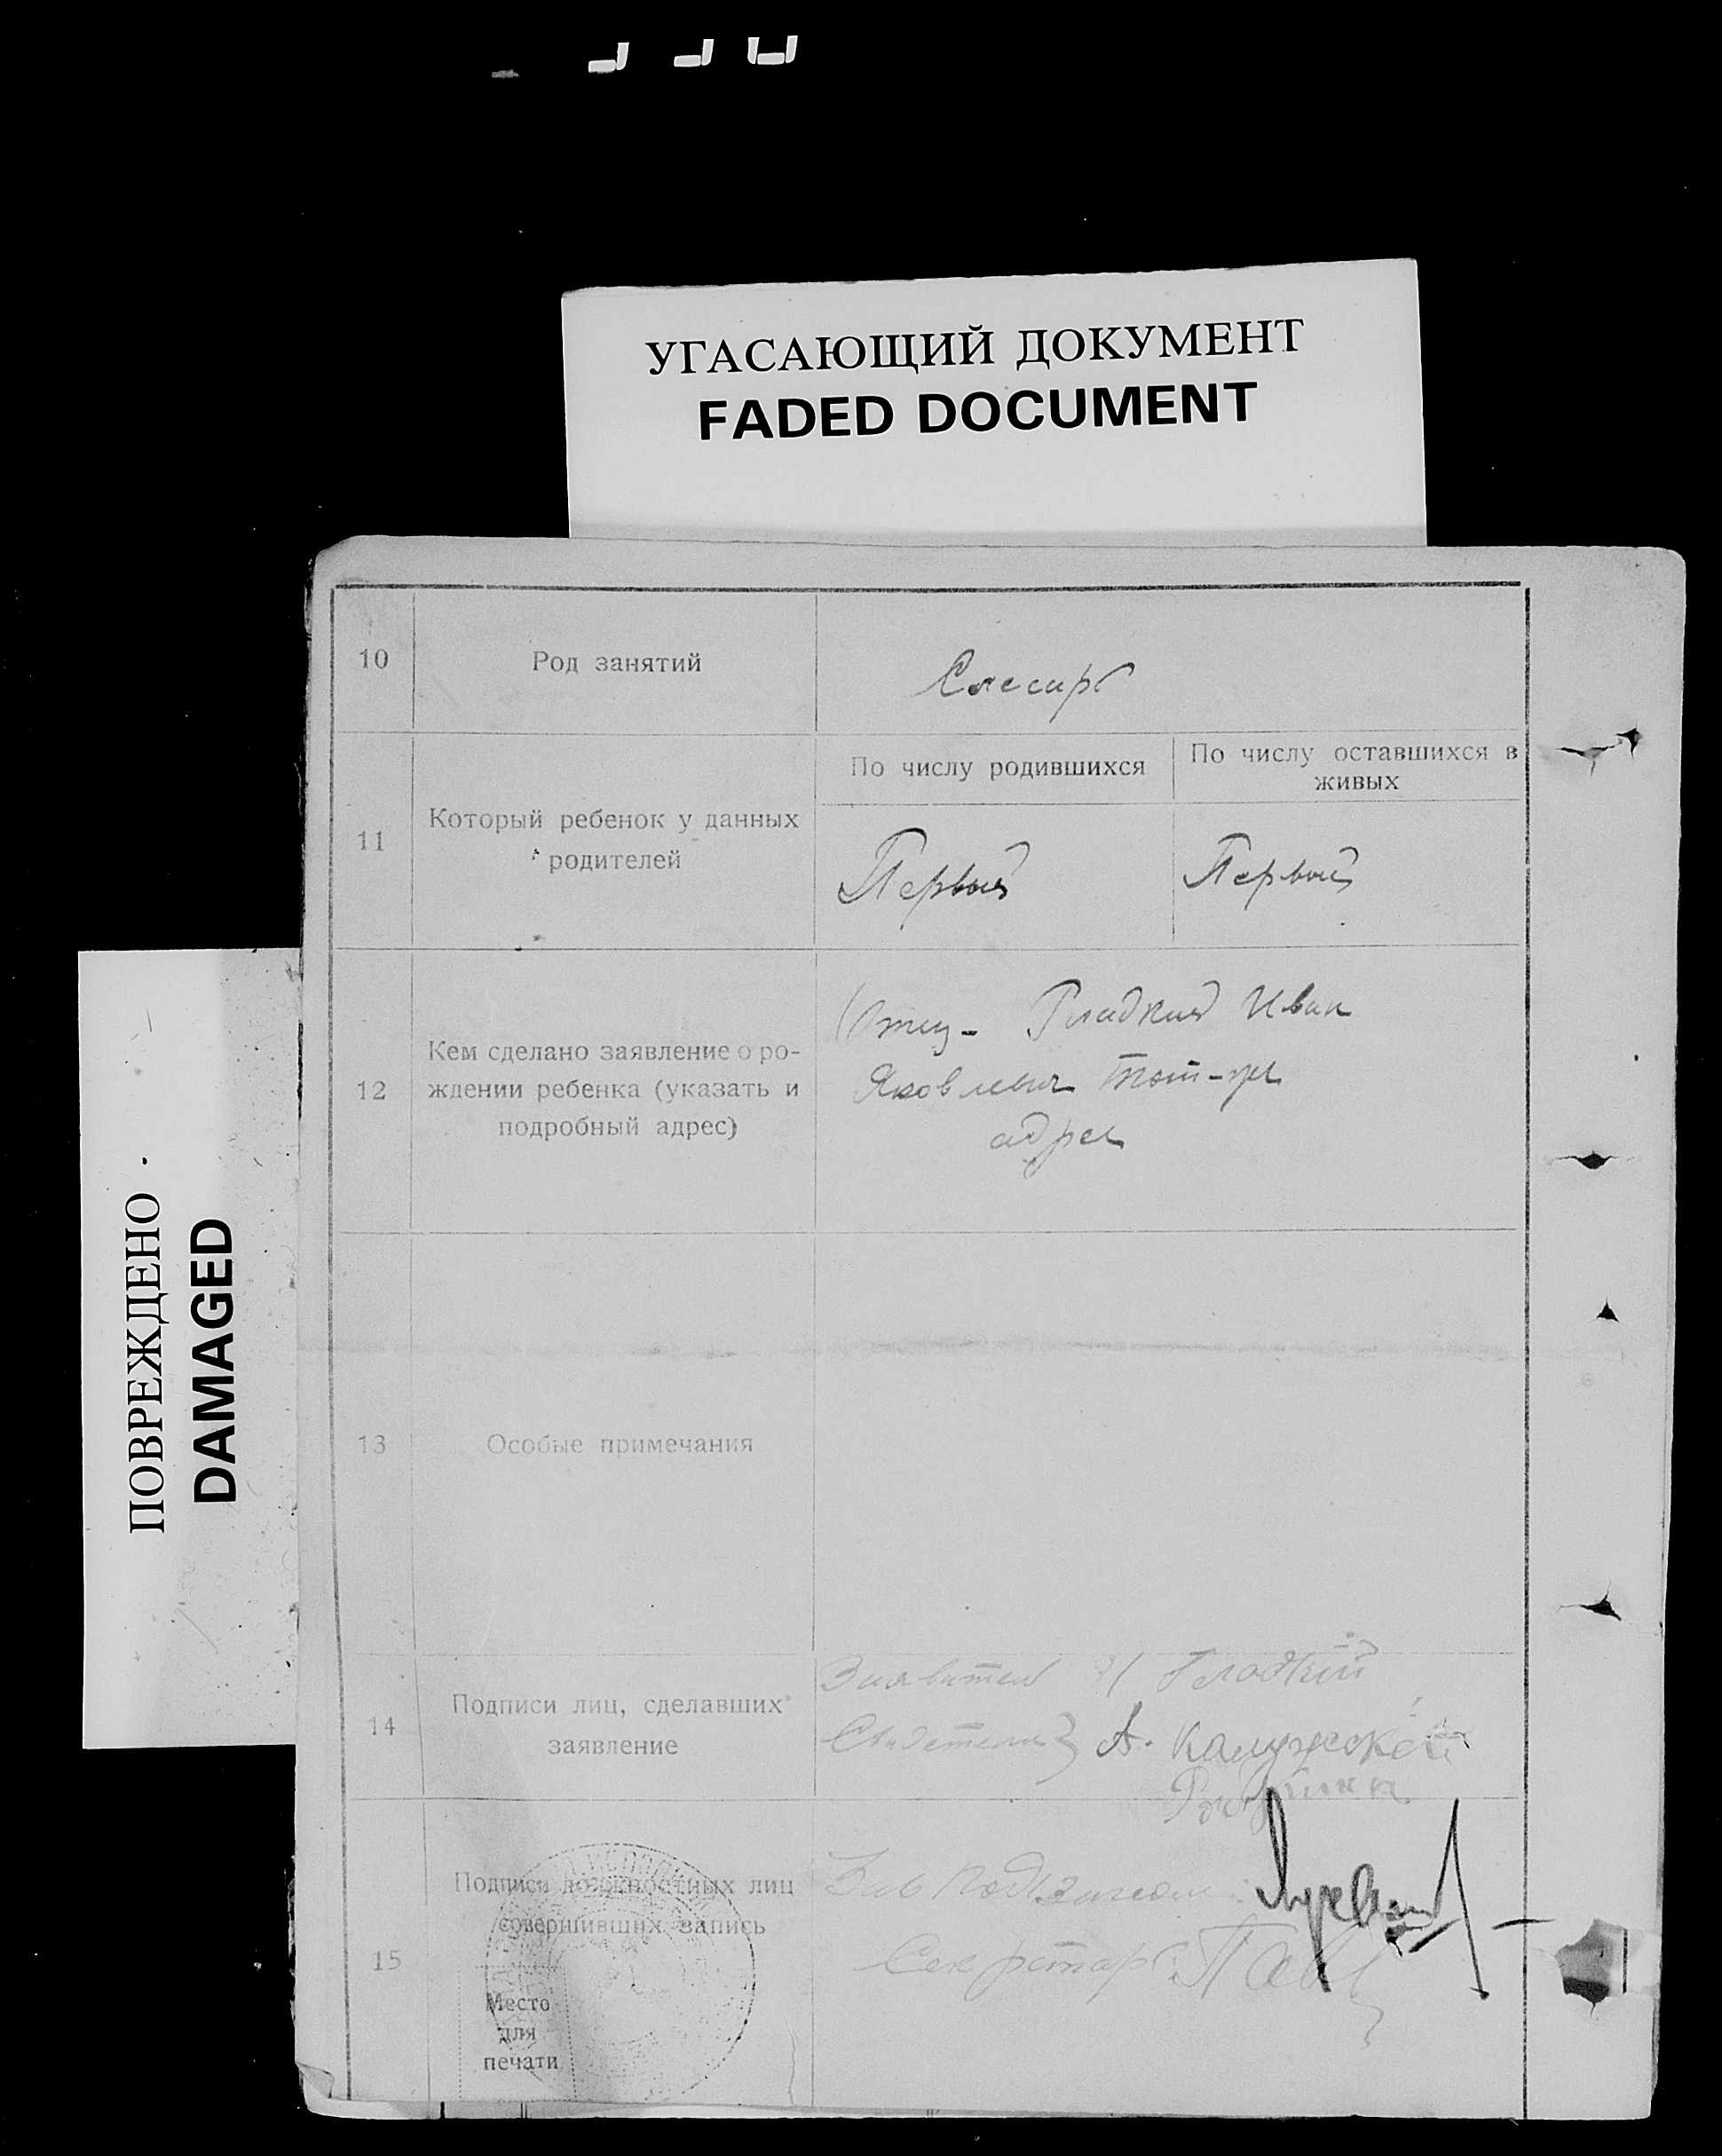 УГАСАЮЩИЙ ДОКУМЕНТ
FADED DOCUMENT
ПОВРЕЖДЕНО
DAMAGED
10
Род занятий
Слесарь
11
Который ребенок у данных
родителей
По числу родившихся
По числу оставшихся в
живых
Первый
Первый
12
Кем сделано заявление о ро-
ждении ребенка (указать и
подробный адрес)
Отец - Гладкий Иван
Яковлевич тот-же
адрес
13
Особые примечания
14
Подписи лиц, сделавших
заявление
Заявитель И Гладкий
Свидетели А. Калужский
15
Подписи должностных лиц
совершивших запись
Место
для
печати
Зав
Секретарь